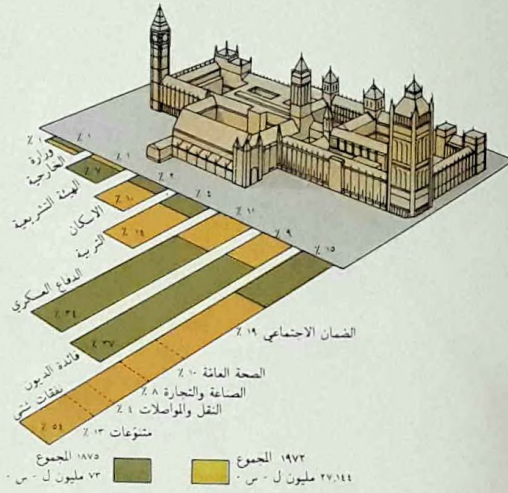 ٪ ١
٪ ١
٪ ١
٪ ٢
٪ ٤
٪ ١١
٪ ٩
٪ ١٥
وزارة الخارجية
٪ ٧
الهيئة التشريعية
٪ ١٠
الاسكان
٪ ١٤
التربية
الدفاع العسكري
٪ ٣٤
٪ ٣٧
فائدة الديون
نفقات شتى
٪ ٥٤
الضمان الاجتماعي ١٩ ٪
الصحة العامّة ١٠ ٪
الصناعة والتجارة ٨ ٪
النقل والمواصلات ٤ ٪
متنوّعات ١٣ ٪
١٨٧٥ المجموع
٧٣ مليون ل - س -
١٩٧٣ المجموع
٢٧,١٤٤ مليون ل - س -